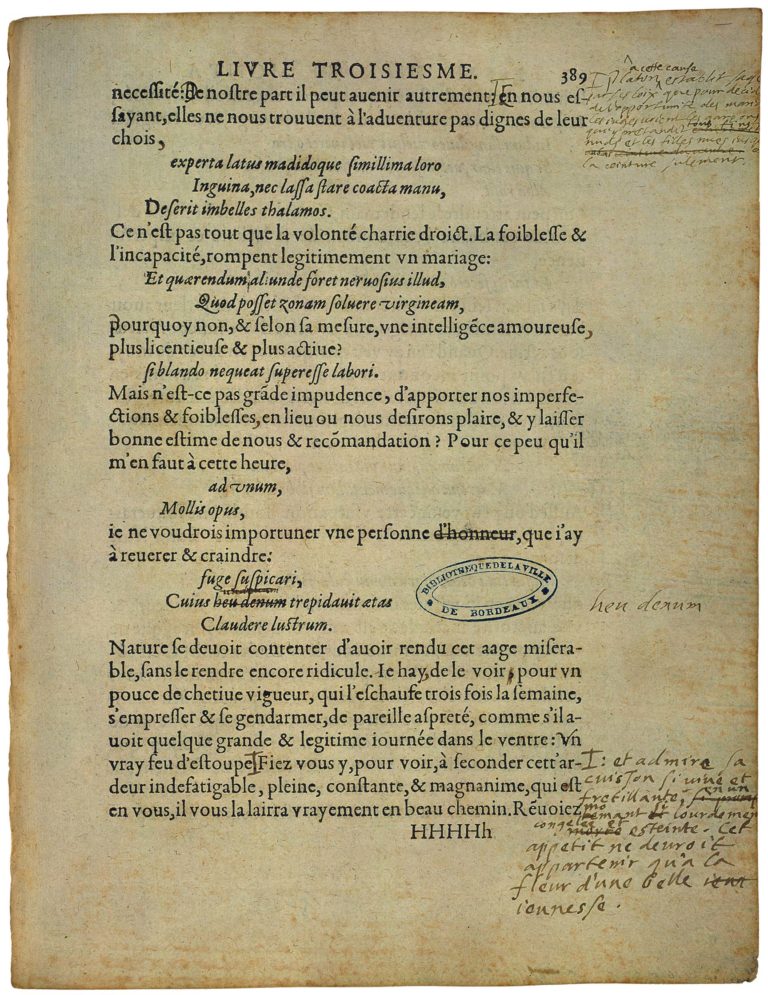 LIVRE TROISIESME. 389
necessité: De nostre part il peut auenir autrement; En nous es-
sayant, elles ne nous trouuent à l'aduenture pas dignes de leur
chois,
experta latus madidoque simillima loro
Inguina, nec lassa stare coacta manu,
Deserit imbelles thalamos.
Ce n'est pas tout que la volonté charrie droict. La foiblesse &
l'incapacité, rompent legitimement vn mariage:
Et quærendum aliunde foret neruosius illud,
Quod posset zonam soluere virgineam,
pourquoy non, & selon sa mesure, vne intelligẽce amoureuse,
plus licentieuse & plus actiue?
si blando nequeat superesse labori.
Mais n'est-ce pas grãde impudence, d'apporter nos imperfe-
ctions & foiblesses, en lieu ou nous desirons plaire, & y laisser
bonne estime de nous & recõmandation? Pour ce peu qu'il
m'en faut à cette heure,
ad vnum,
Mollis opus,
ie ne voudrois importuner vne personne d'honneur, que i'ay
à reuerer & craindre:
fuge suspicari,
Cuius heu denum trepidauit ætas
Claudere lustrum.
BIBLIOTHEQUE DE LA VILLE
DE BORDEAUX
heu denum
Nature se deuoit contenter d'auoir rendu cet aage misera-
ble, sans le rendre encore ridicule. Ie hay, de le voir, pour vn
pouce de chetiue vigueur, qui l'eschaufe trois fois la semaine,
s'empresser & se gendarmer, de pareille aspreté, comme s'il a-
uoit quelque grande & legitime iournée dans le ventre: Vn
vray feu d'estoupe Fiez vous y, pour voir, à seconder cett'ar-
deur indefatigable, pleine, constante, & magnanime, qui est
en vous, il vous la lairra vrayement en beau chemin. Rẽuoiez
HHHHh
a cette cause
Platon establit
la ceinture sulement.
: et admire sa
cuisson si viue et
fretillante, en un
lourdemen
congelee et esteinte. Cet
appetit ne deuroit
appartenir qu'a la
fleur d'une belle
ieunesse.